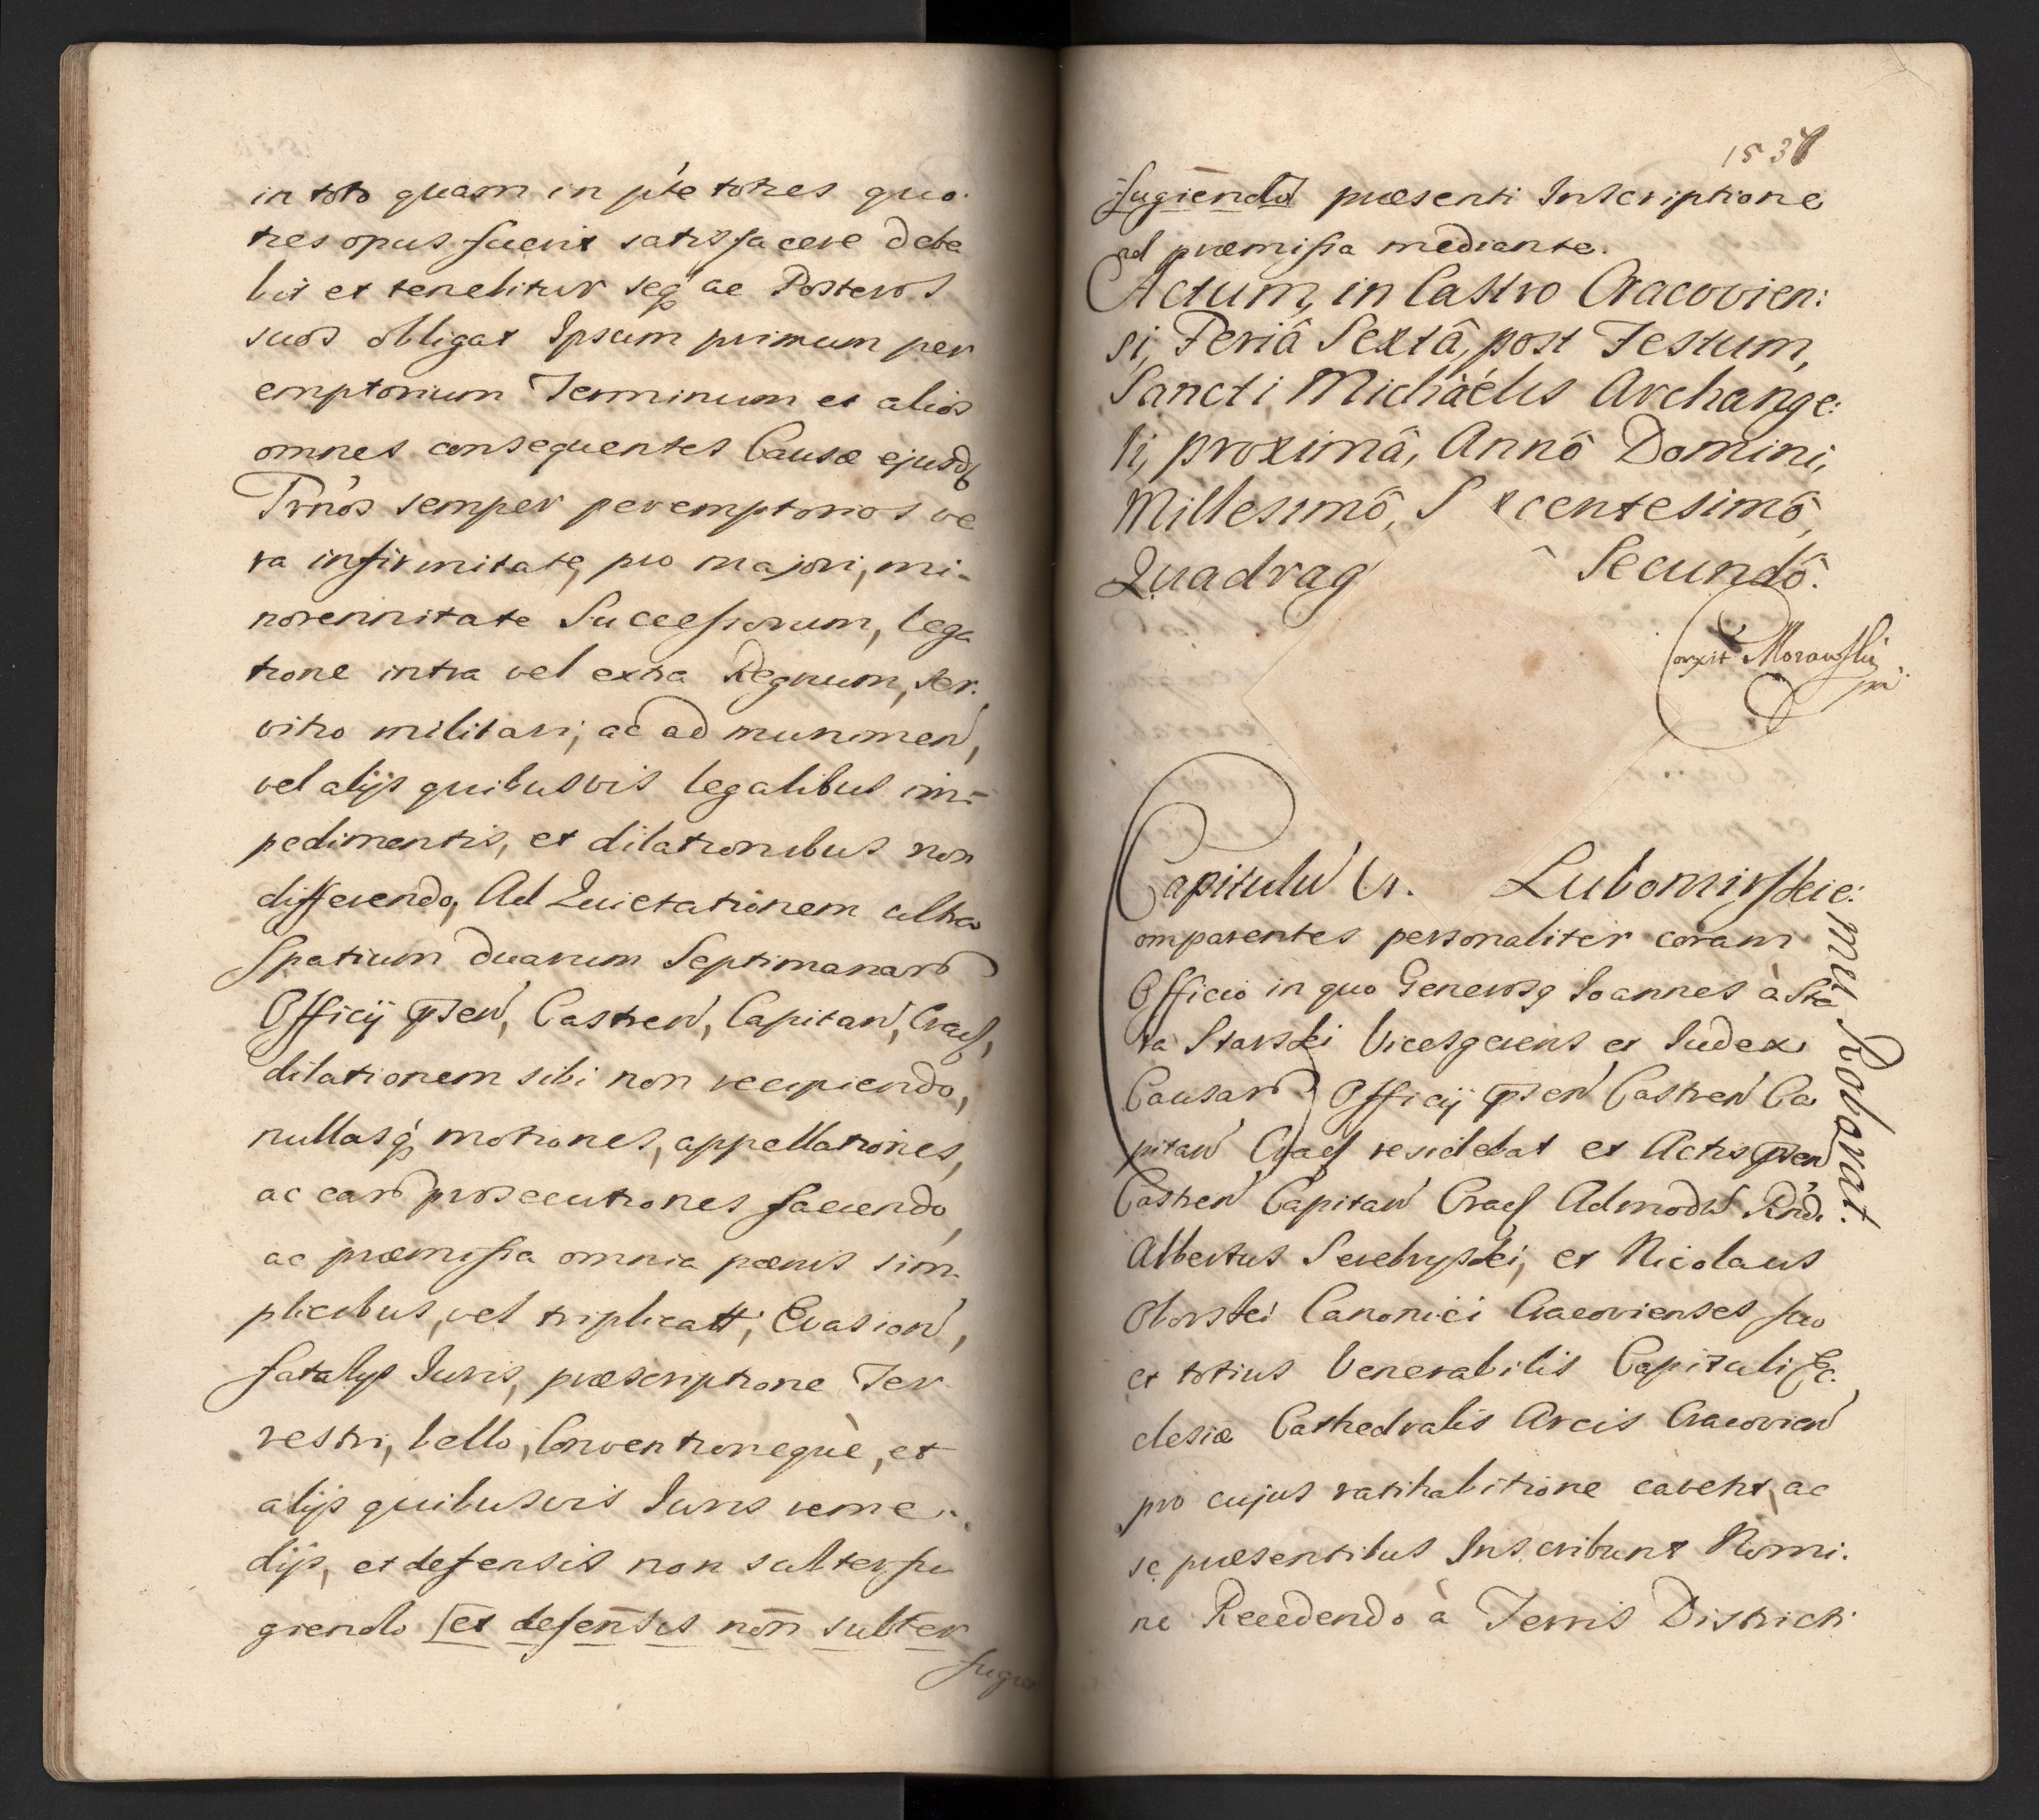 in toto quam in pte toties quo.
ties opus fuerit satisfacere debe
bit et tenebitur seq ac Posteros
suos obligat Ipsum primum per
emptorium Terminum et alios
omnes consequentes Causæ ejusdq
Trnós semper peremptorios ve
ra infirmitate, pro majori, mi-
norennitate Successorum, lega
tione intra vel extra Regnum, ser.
vitio militari, ac ad munimen,
vel alijs quibusvis legalibus im-
pedimentis, et dilationibus non
differendo, Ad Quietationem ultra
Spatium duarum Septimanarū
Officij pñsen, Castren, Capitan, Cracˢ,
dilationem sibi non recipiendo,
nullasq motiones, appellationes,
ac earū prosecutiones faciendo,
ac præmissa omnia pœnis sim-
plicibus, vel triplicatt, Evasion,
fatalijs Iuris, præscriptione Ter
restri, bello, Conventionequè, et
alijs quibusvis Iuris reme-
dijs, et defensis non subterfu
giendo [et defensis non subter
fugien
1537
fugiendo] præsenti Inscriptione
ad præmissa mediante.
Actum, in Castro Cracovien:
si, Feriâ Sextâ, post Festum,
Sancti Michàélis Archange:
li, proximâ, Annô Domini,
Millesimô, S xcentesimô,
Quadrag Secundô.
Corexit Morawski
mp
Capitulū Cr. Lubomirskie:
mu Roborat.
omparentes personaliter coram
Officio in quo Generosq Ioannes à Sta
ra Starski Vicesgerens et Iudex
Causarū Officij pñsen Castren Ca
pitan Cracˢ residebat et Actis pñsen
Castren Capitan Cracˢ Admodū Rndi
Albertus Serebryski, et Nicolaus
Oborski Canonici Cracovienses suo
et totius Venerabilis Capituli Ec.
clesiæ Cathedralis Arcis Cracovien
pro cujus ratihabitione cavent, ac
se præsentibus Inscribunt Nomi.
ne Recedendo à Terris Districti